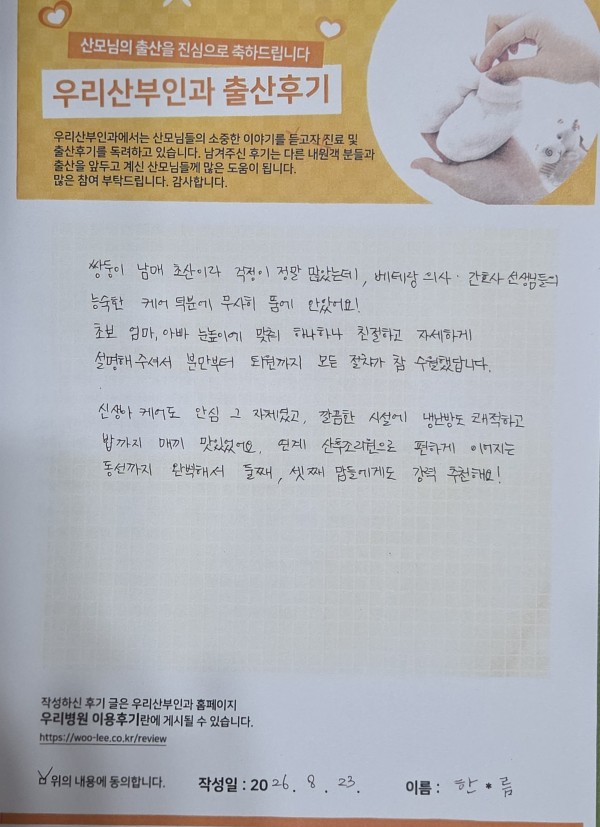 산모님의 출산을 진심으로 축하드립니다
우리산부인과 출산후기
우리산부인과에서는 산모님들의 소중한 이야기를 듣고자 진료 및
출산후기를 독려하고 있습니다. 남겨주신 후기는 다른 내원객 분들과
출산을 앞두고 계신 산모님들께 많은 도움이 됩니다.
많은 참여 부탁드립니다. 감사합니다.
쌍둥이 남매 초산이라 걱정이 정말 많았는데, 베테랑 의사·간호사 선생님들의
능숙한 케어 덕분에 무사히 품에 안았어요!
초보 엄마, 아빠 눈높이에 맞춰 하나하나 친절하고 자세하게
설명해주셔서 분만부터 퇴원까지 모든 절차가 참 수월했답니다.
신생아 케어도 안심 그 자체였고, 깔끔한 시설에 냉난방도 쾌적하고
밥까지 매끼 맛있었어요. 연계 산후조리원으로 편하게 이어지는
동선까지 완벽해서 둘째, 셋째 맘들에게도 강력 추천해요!
작성하신 후기 글은 우리산부인과 홈페이지
우리병원 이용후기란에 게시될 수 있습니다.
https://woo-lee.co.kr/review
위의 내용에 동의합니다. 작성일 : 2026. 8. 23. 이름 : 한*름